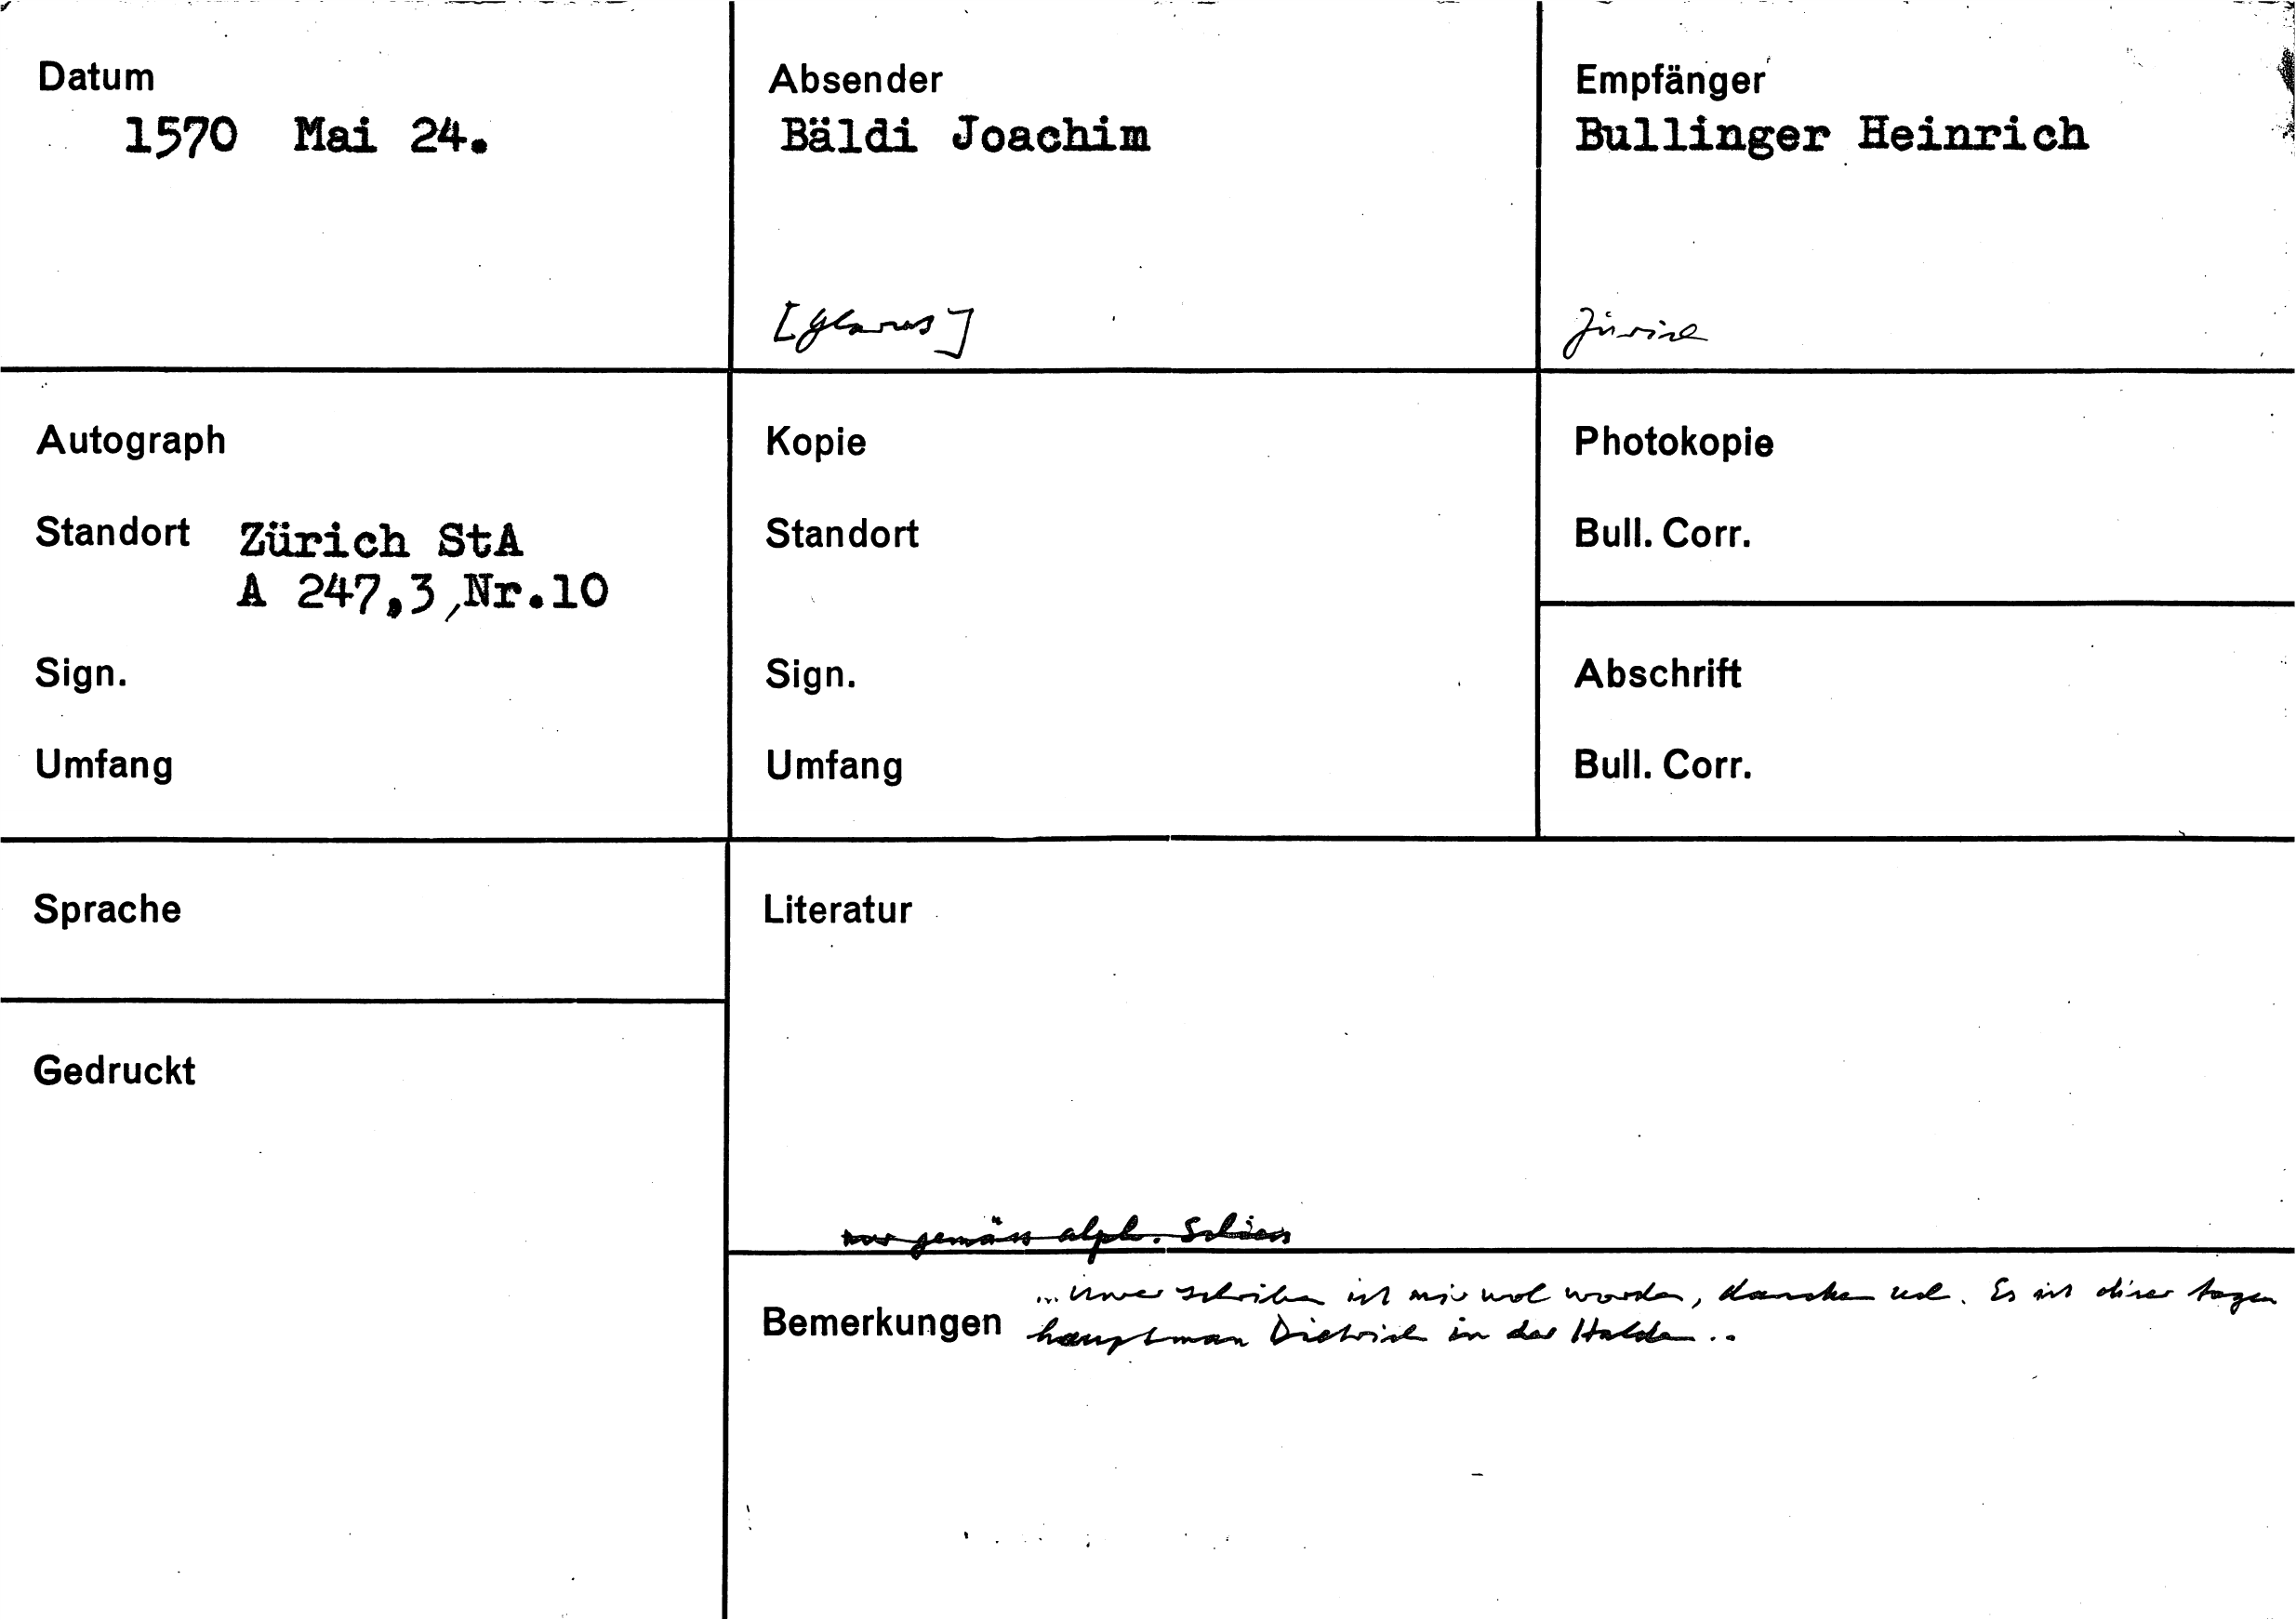 Datum
1570 Mai 24.
Absender
Bäldi Joachim
[Glarus]
Empfänger
Bullinger Heinrich
Zürich
Autograph
Standort Zürich StA
A 247,3,Nr.10
Sign.
Umfang
Kopie
Standort
Sign.
Umfang
Photokopie
Bull. Corr.
Abschrift
Bull. Corr.
Sprache
Gedruckt
Literatur
nur gemäss alph. Schiess
Bemerkungen
... schriben ist mir wol worden, dancken uch. Es ist diser tagen
hauptman Dietrich in der Halden..